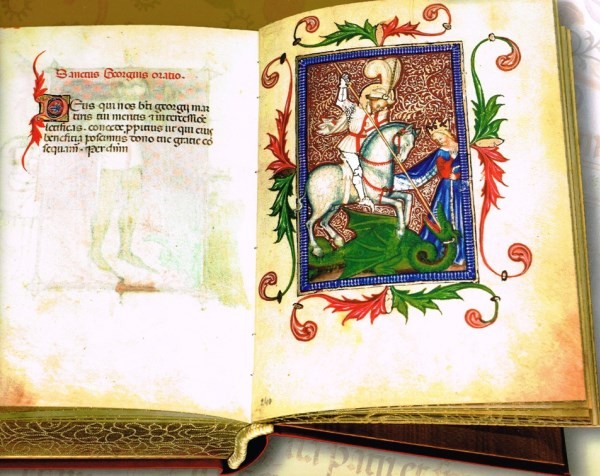 Sanctus Georgius oratio.
Deus qui nos bti georgii mar
tiris tui meritis et intercessioe
letificas. concede ppitius ut qui eius
beneficia poscimus dono tue gratie co
sequam. Per